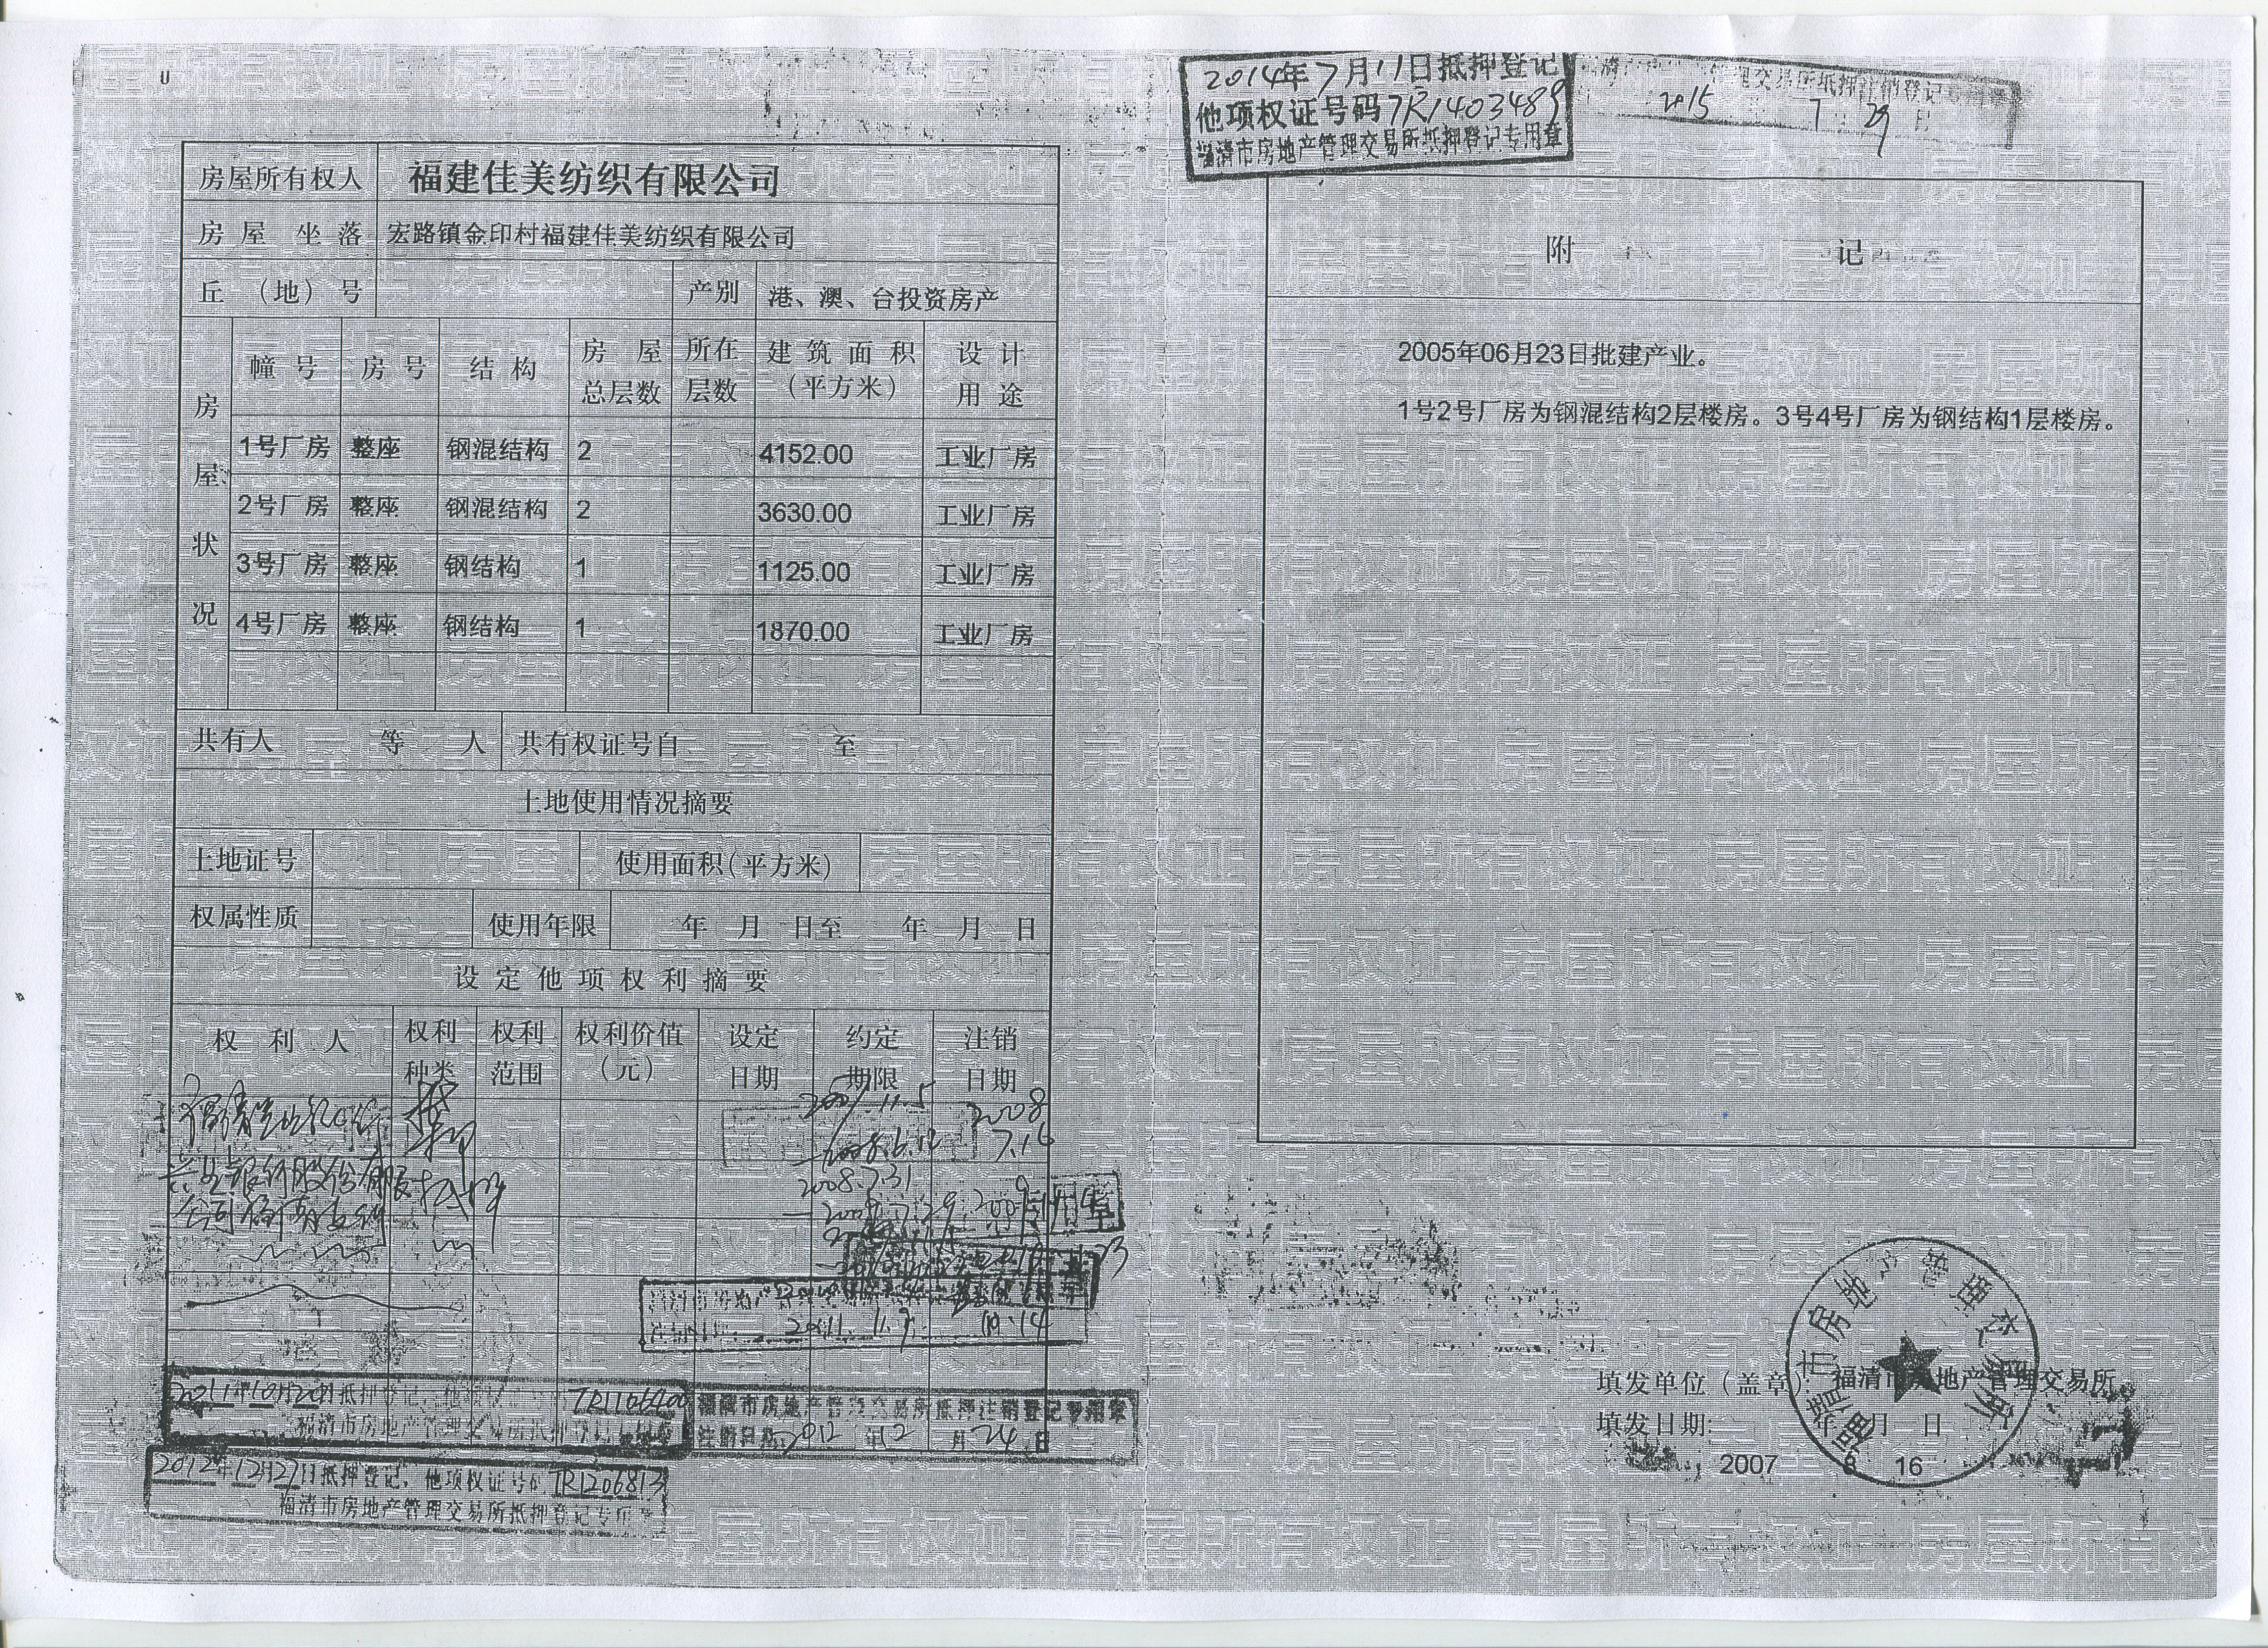 2014年7月11日抵押登记
他项权证号码TR1403489
福清市房地产管理交易所抵押登记专用章
交易所抵押注销登记
2015 7 29日
房屋所有权人 福建佳美纺织有限公司
房屋坐落 宏路镇金印村福建佳美纺织有限公司
丘(地)号 产别 港、澳、台投资房产
房屋状况
幢号 房号 结构 房屋总层数 所在层数 建筑面积(平方米) 设计用途
1号厂房 整座 钢混结构 2 4152.00 工业厂房
2号厂房 整座 钢混结构 2 3630.00 工业厂房
3号厂房 整座 钢结构 1 1125.00 工业厂房
4号厂房 整座 钢结构 1 1870.00 工业厂房
共有人 等 人 共有权证号自 至
土地使用情况摘要
土地证号 使用面积(平方米)
权属性质 使用年限 年 月 日至 年 月 日
设定他项权利摘要
权利人 权利种类 权利范围 权利价值(元) 设定日期 约定期限 注销日期
2007.11.5 2008
7.16
兴业银行股份有限 抵押 2008.7.31
公司福清支行
2011 11.9 10.14
2011年10月20日抵押登记,他项 TR1106900
福清市房地产管理交易所抵押登记
福清市房地产管理交易所抵押注销登记专用章
注销日期 2012年12月24日
2012年12月27日抵押登记,他项权证号码TR1206813
福清市房地产管理交易所抵押登记专用章
附 记
2005年06月23日批建产业。
1号2号厂房为钢混结构2层楼房。3号4号厂房为钢结构1层楼房。
福清市房地产管理交易所
填发单位(盖章) 福清市房地产管理交易所
填发日期: 年 月 日
2007 8 16